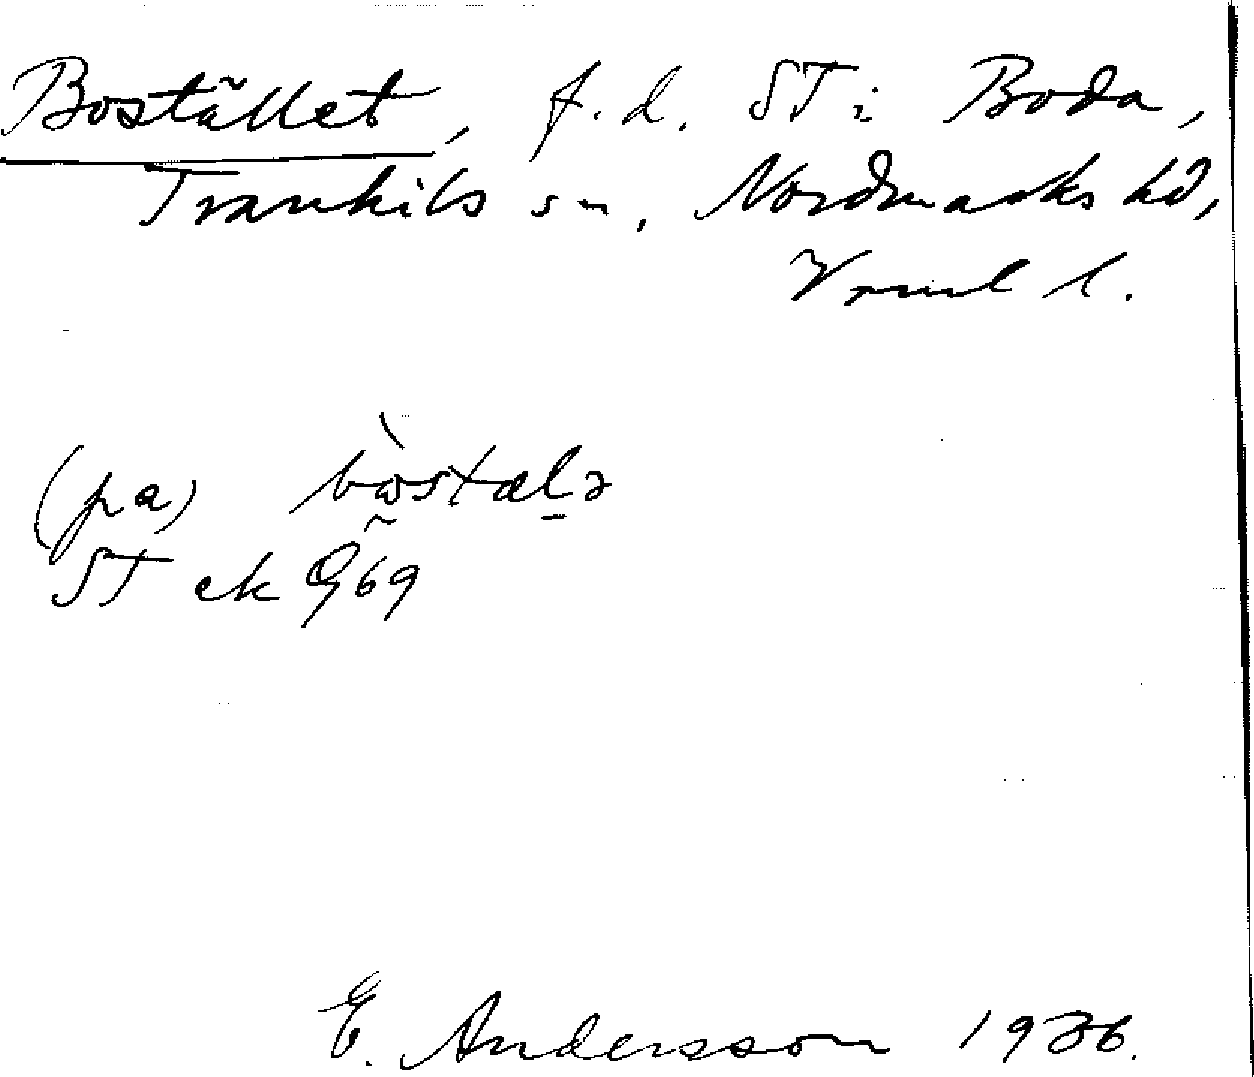 Bostället, f.d. ST i Boda,
Trankils sn, Nordmarks hd,
Vrml l.
(pa) bòstalə
ST ek 969
E. Andersson 1936.